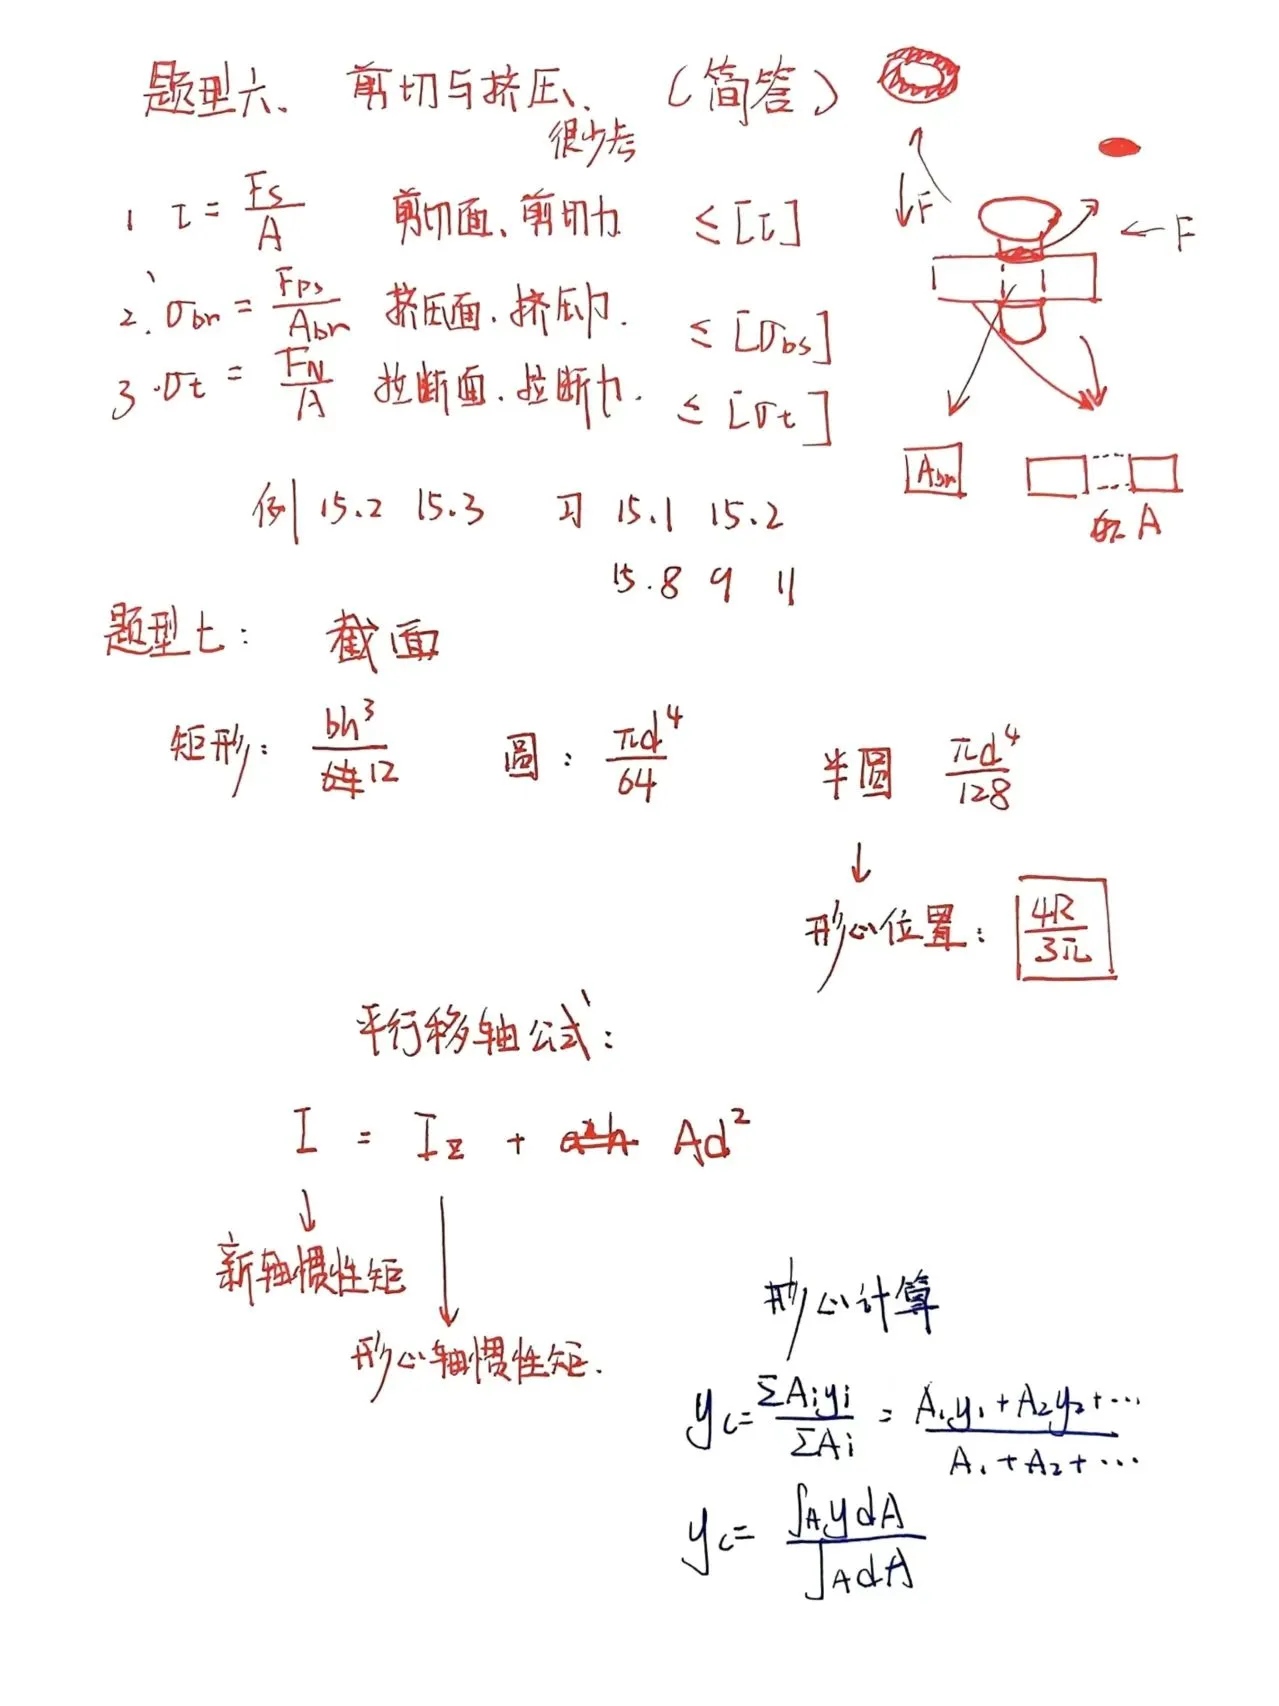 题型六、 剪切与挤压、 (简答)
很少考
1 τ = Fs/A 剪切面、剪切力 ≤ [τ]
2. σbr = Fps/Abr 挤压面、挤压力. ≤ [σbs]
3. σt = FN/A 拉断面、拉断力. ≤ [σt]
↓F
← F
Abr
A
例 15.2 15.3 习 15.1 15.2
15.8 9 11
题型七: 截面
矩形: bh³/12 圆: πd⁴/64 半圆 πd⁴/128
↓
形心位置: 4R/3π
平行移轴公式:
I = Iz + Ad²
新轴惯性矩
形心轴惯性矩.
形心计算
yc = ΣAiyi/ΣAi = A₁y₁+A₂y₂+···/A₁+A₂+···
yc = ∫A y dA/∫A dA